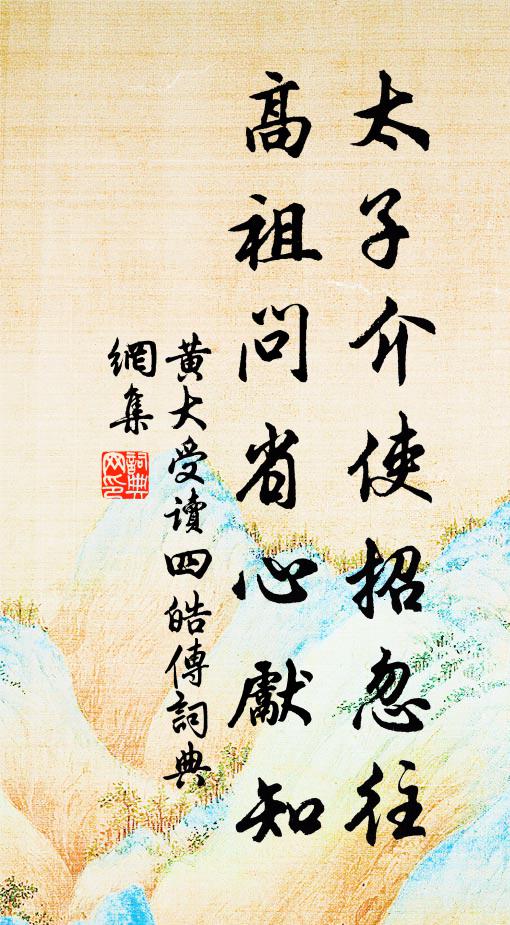 太子介使招忽往
高祖問省心獻知
黃大受讀四皓傳詞典
網集